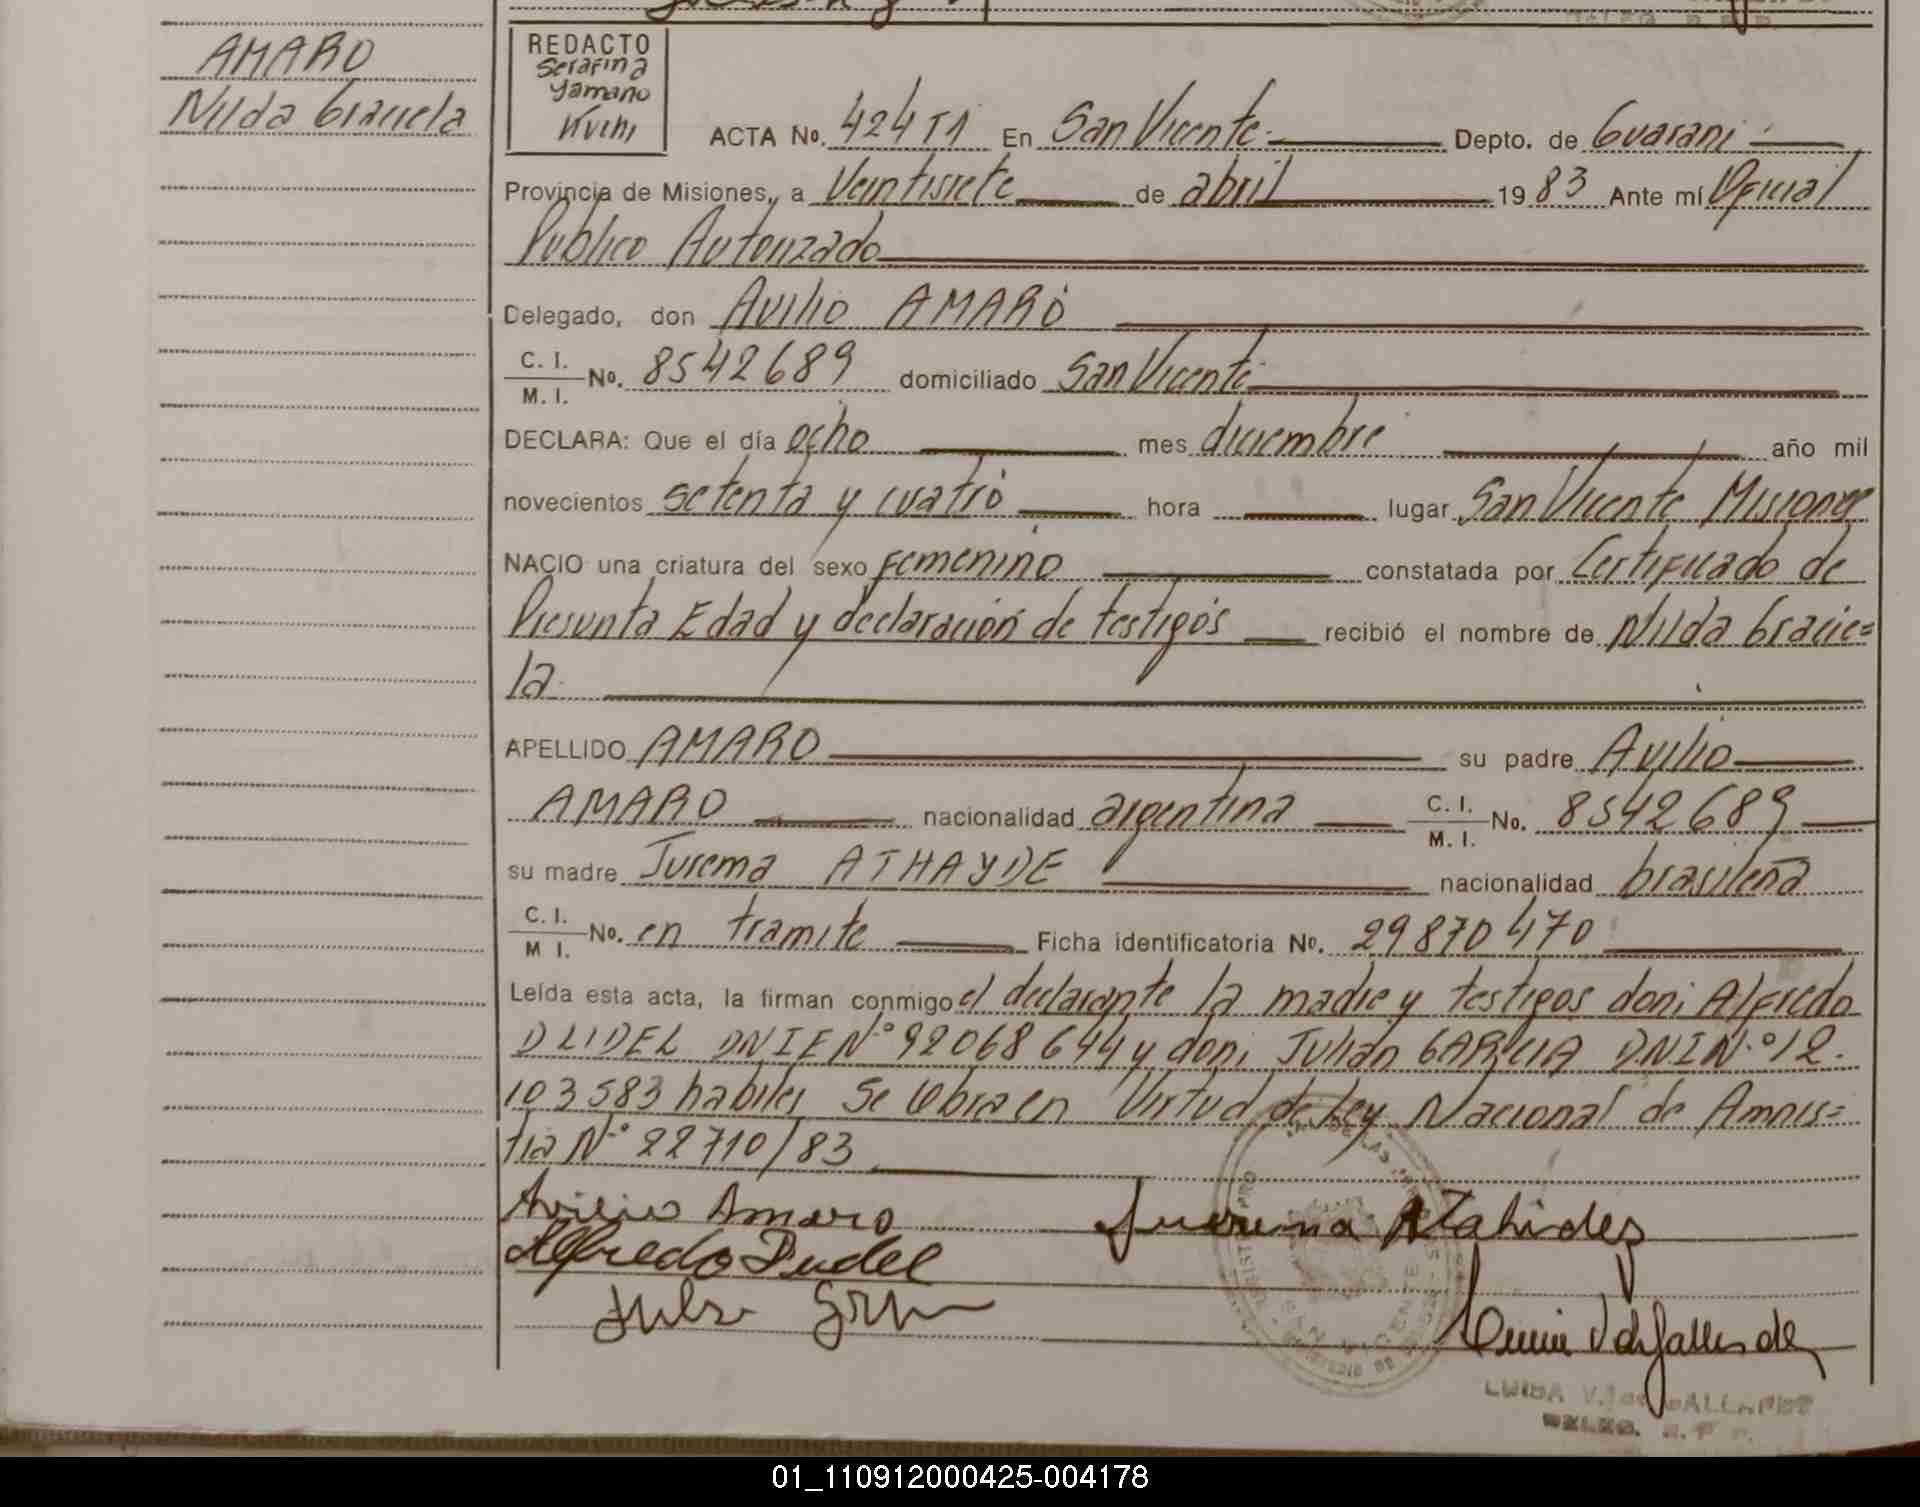 AMARO
Nilda Graciela
REDACTO
Serafina
Yamano
Kuini
ACTA No. 424 T1 En San Vicente Depto. de Guarani
Provincia de Misiones, a Veintisiete de abril 1983 Ante mí Oficial
Publico Autorizado
Delegado, don Avilio AMARO
C. I. M. I. No. 8542689 domiciliado San Vicente
DECLARA: Que el día ocho mes diciembre año mil
novecientos setenta y cuatro hora lugar San Vicente Misiones
NACIO una criatura del sexo femenino constatada por Certificado de
Presunta Edad y declaración de testigos recibió el nombre de Nilda Gracie=
la
APELLIDO AMARO su padre Avilio
AMARO nacionalidad argentina C. I. M. I. No. 8542689
su madre Jurema ATHAYDE nacionalidad brasileña
C. I. M I. No. en tramite Ficha identificatoria No. 29870470
Leída esta acta, la firman conmigo el declarante la madre y testigos don: Alfredo
DLIDEL DNIE Nº 92068644 y don: Julian GARCIA D.N.I N.º 12.
103583 habiles Se labra en Virtud de Ley Nacional de Amnis=
tia Nº 22710/83
Avilio Amaro Jurema Atahides
Alfredo Dudel
SAN VICENTE
LUISA V. DE GALLARDO
DELEG. R. P.
01_110912000425-004178